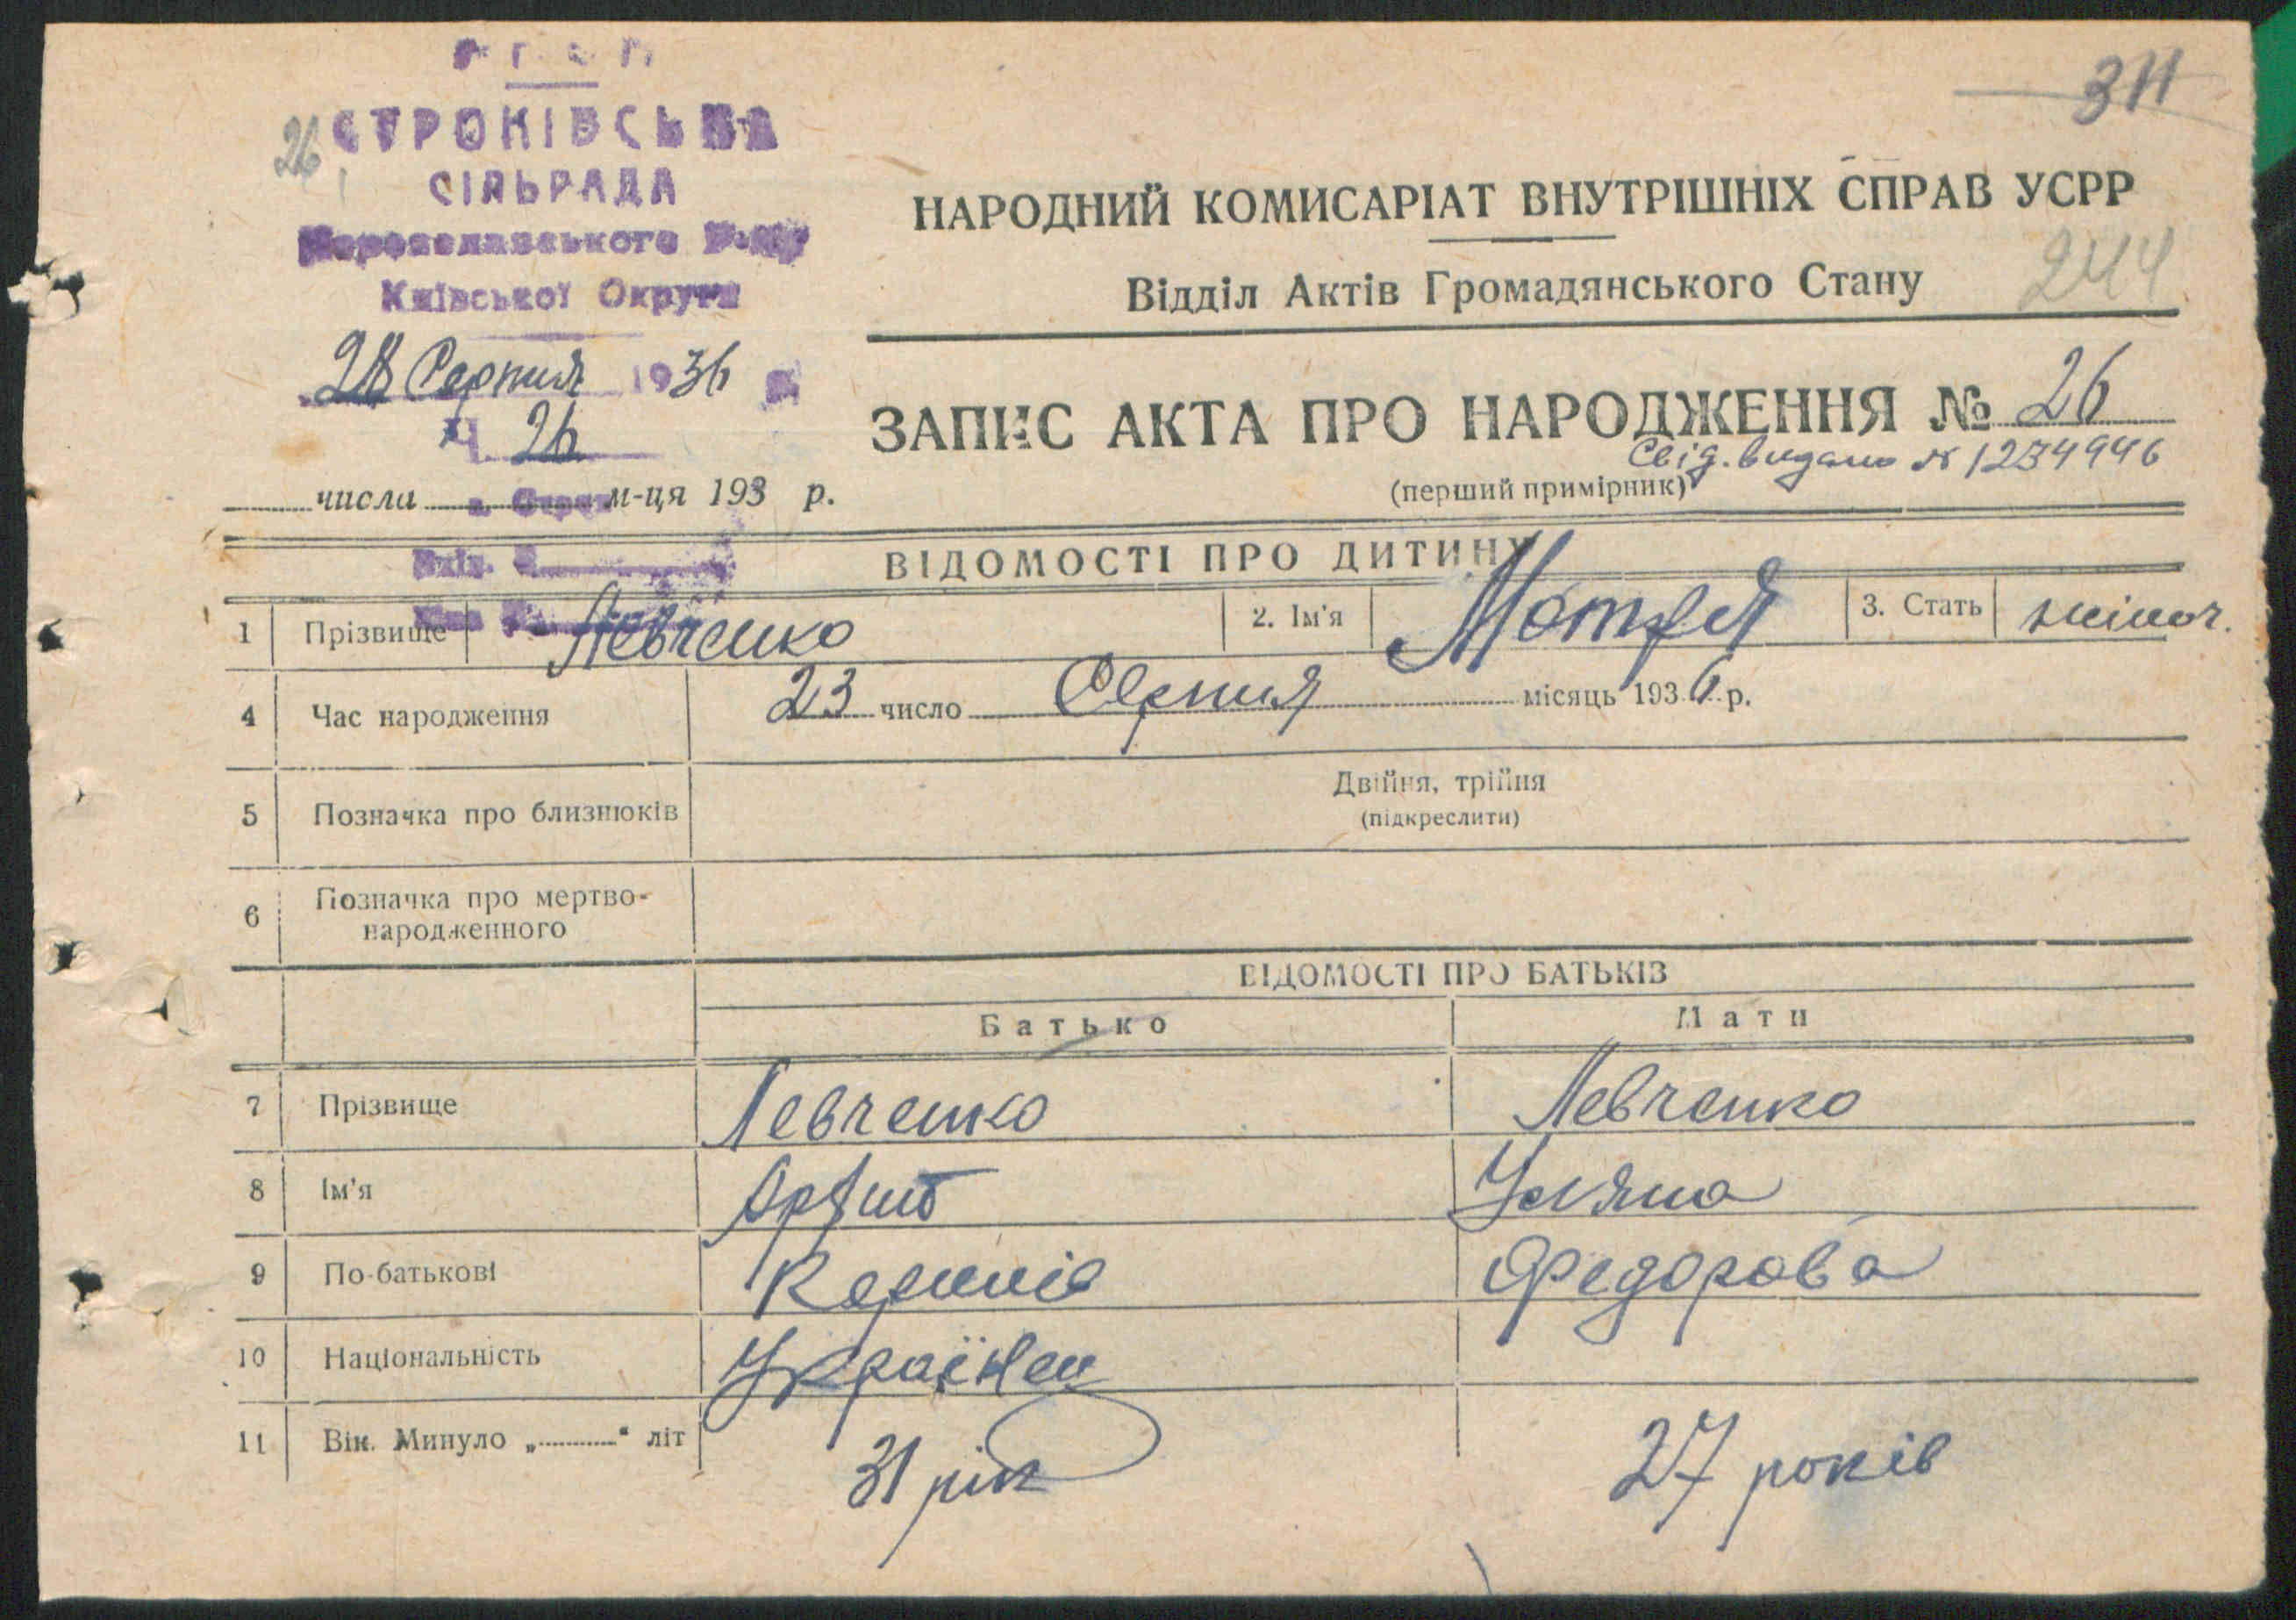 311
26
СТРОКІВСЬКА
СІЛЬРАДА
Переяславського Р-ну
Київської Округи
28 Серпня 1936 р.
Ч. 26
числа м-ця 193 р.
НАРОДНИЙ КОМИСАРІАТ ВНУТРІШНІХ СПРАВ УСРР
Відділ Актів Громадянського Стану
244
ЗАПИС АКТА ПРО НАРОДЖЕННЯ № 26
Свід. видано № 1234946
(перший примірник)
ВІДОМОСТІ ПРО ДИТИНУ
1 Прізвище Левченко 2. Ім'я Мотря 3. Стать жіноч.
4 Час народження 23 число Серпня місяць 1936 р.
5 Позначка про близнюків Двійня, трійня
(підкреслити)
6 Позначка про мертво-
народженного
ВІДОМОСТІ ПРО БАТЬКІВ
Батько Мати
7 Прізвище Левченко Левченко
8 Ім'я Уляна
9 По-батькові Федорова
10 Національність Українец
11 Вік. Минуло „ “ літ 31 рік 27 років